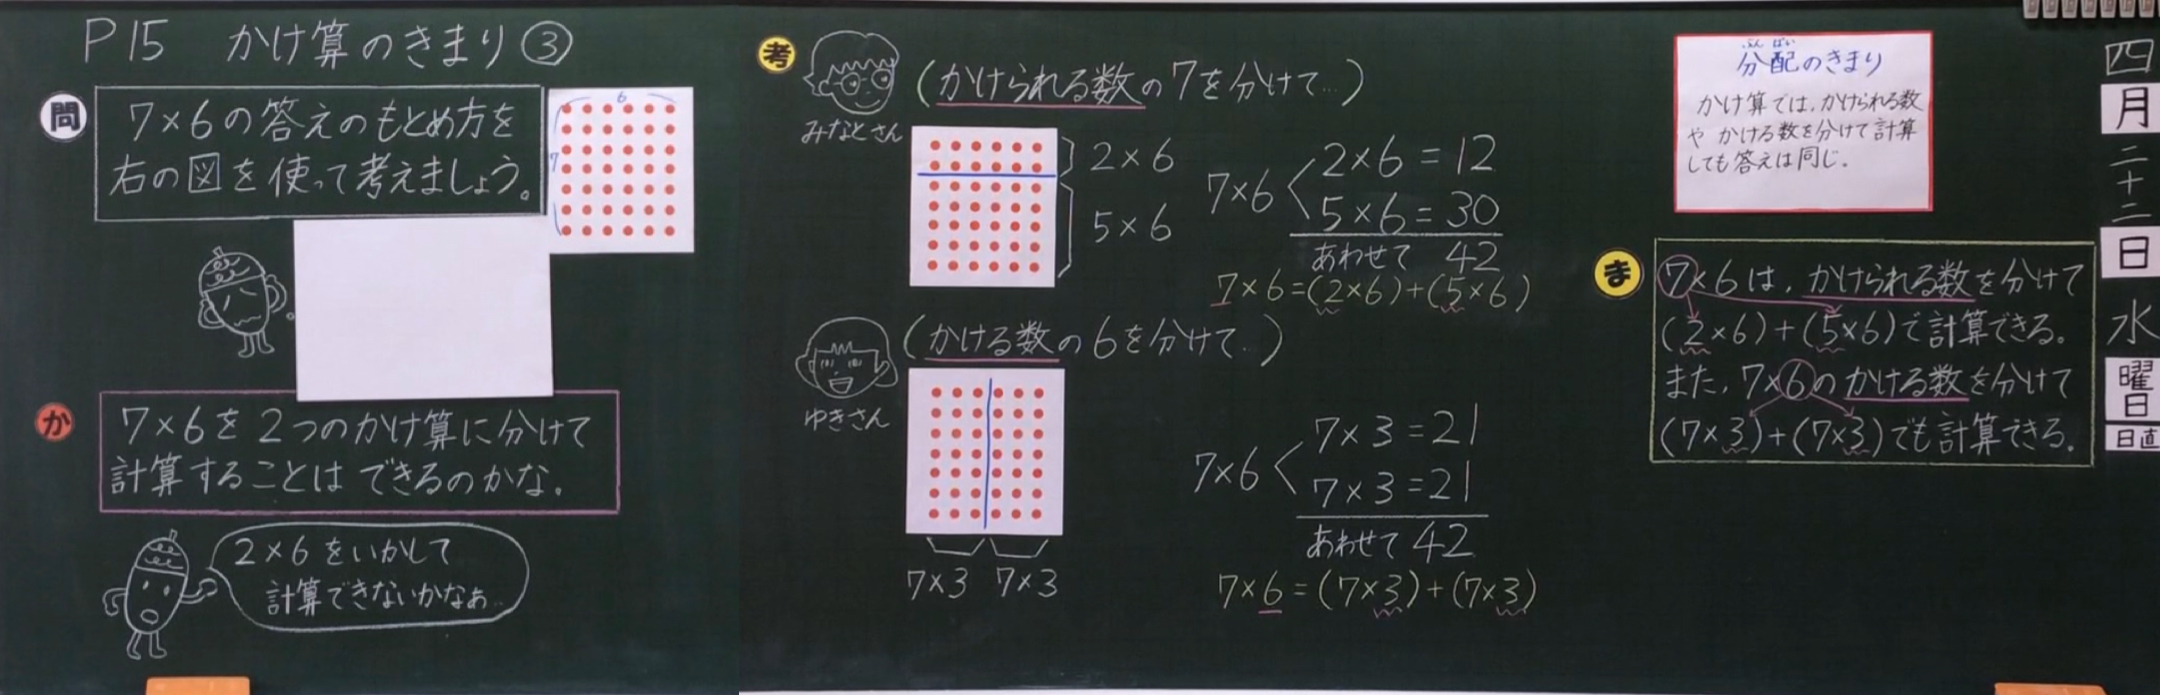 P15 かけ算のきまり③
問
7×6の答えのもとめ方を
右の図を使って考えましょう。
6
7
か
7×6を2つのかけ算に分けて
計算することはできるのかな。
2×6をいかして
計算できないかなぁ…
考
みなとさん
(かけられる数の7を分けて…)
2×6
5×6
7×6
2×6=12
5×6=30
あわせて 42
7×6=(2×6)+(5×6)
ゆきさん
(かける数の6を分けて…)
7×3 7×3
7×6
7×3=21
7×3=21
あわせて 42
7×6=(7×3)+(7×3)
ぶんぱい
分配のきまり
かけ算では,かけられる数
や かける数を分けて計算
しても答えは同じ.
ま
7×6は,かけられる数を分けて
(2×6)+(5×6)で計算できる。
また,7×6のかける数を分けて
(7×3)+(7×3)でも計算できる。
四
月
二十二
日
水
曜日
日直